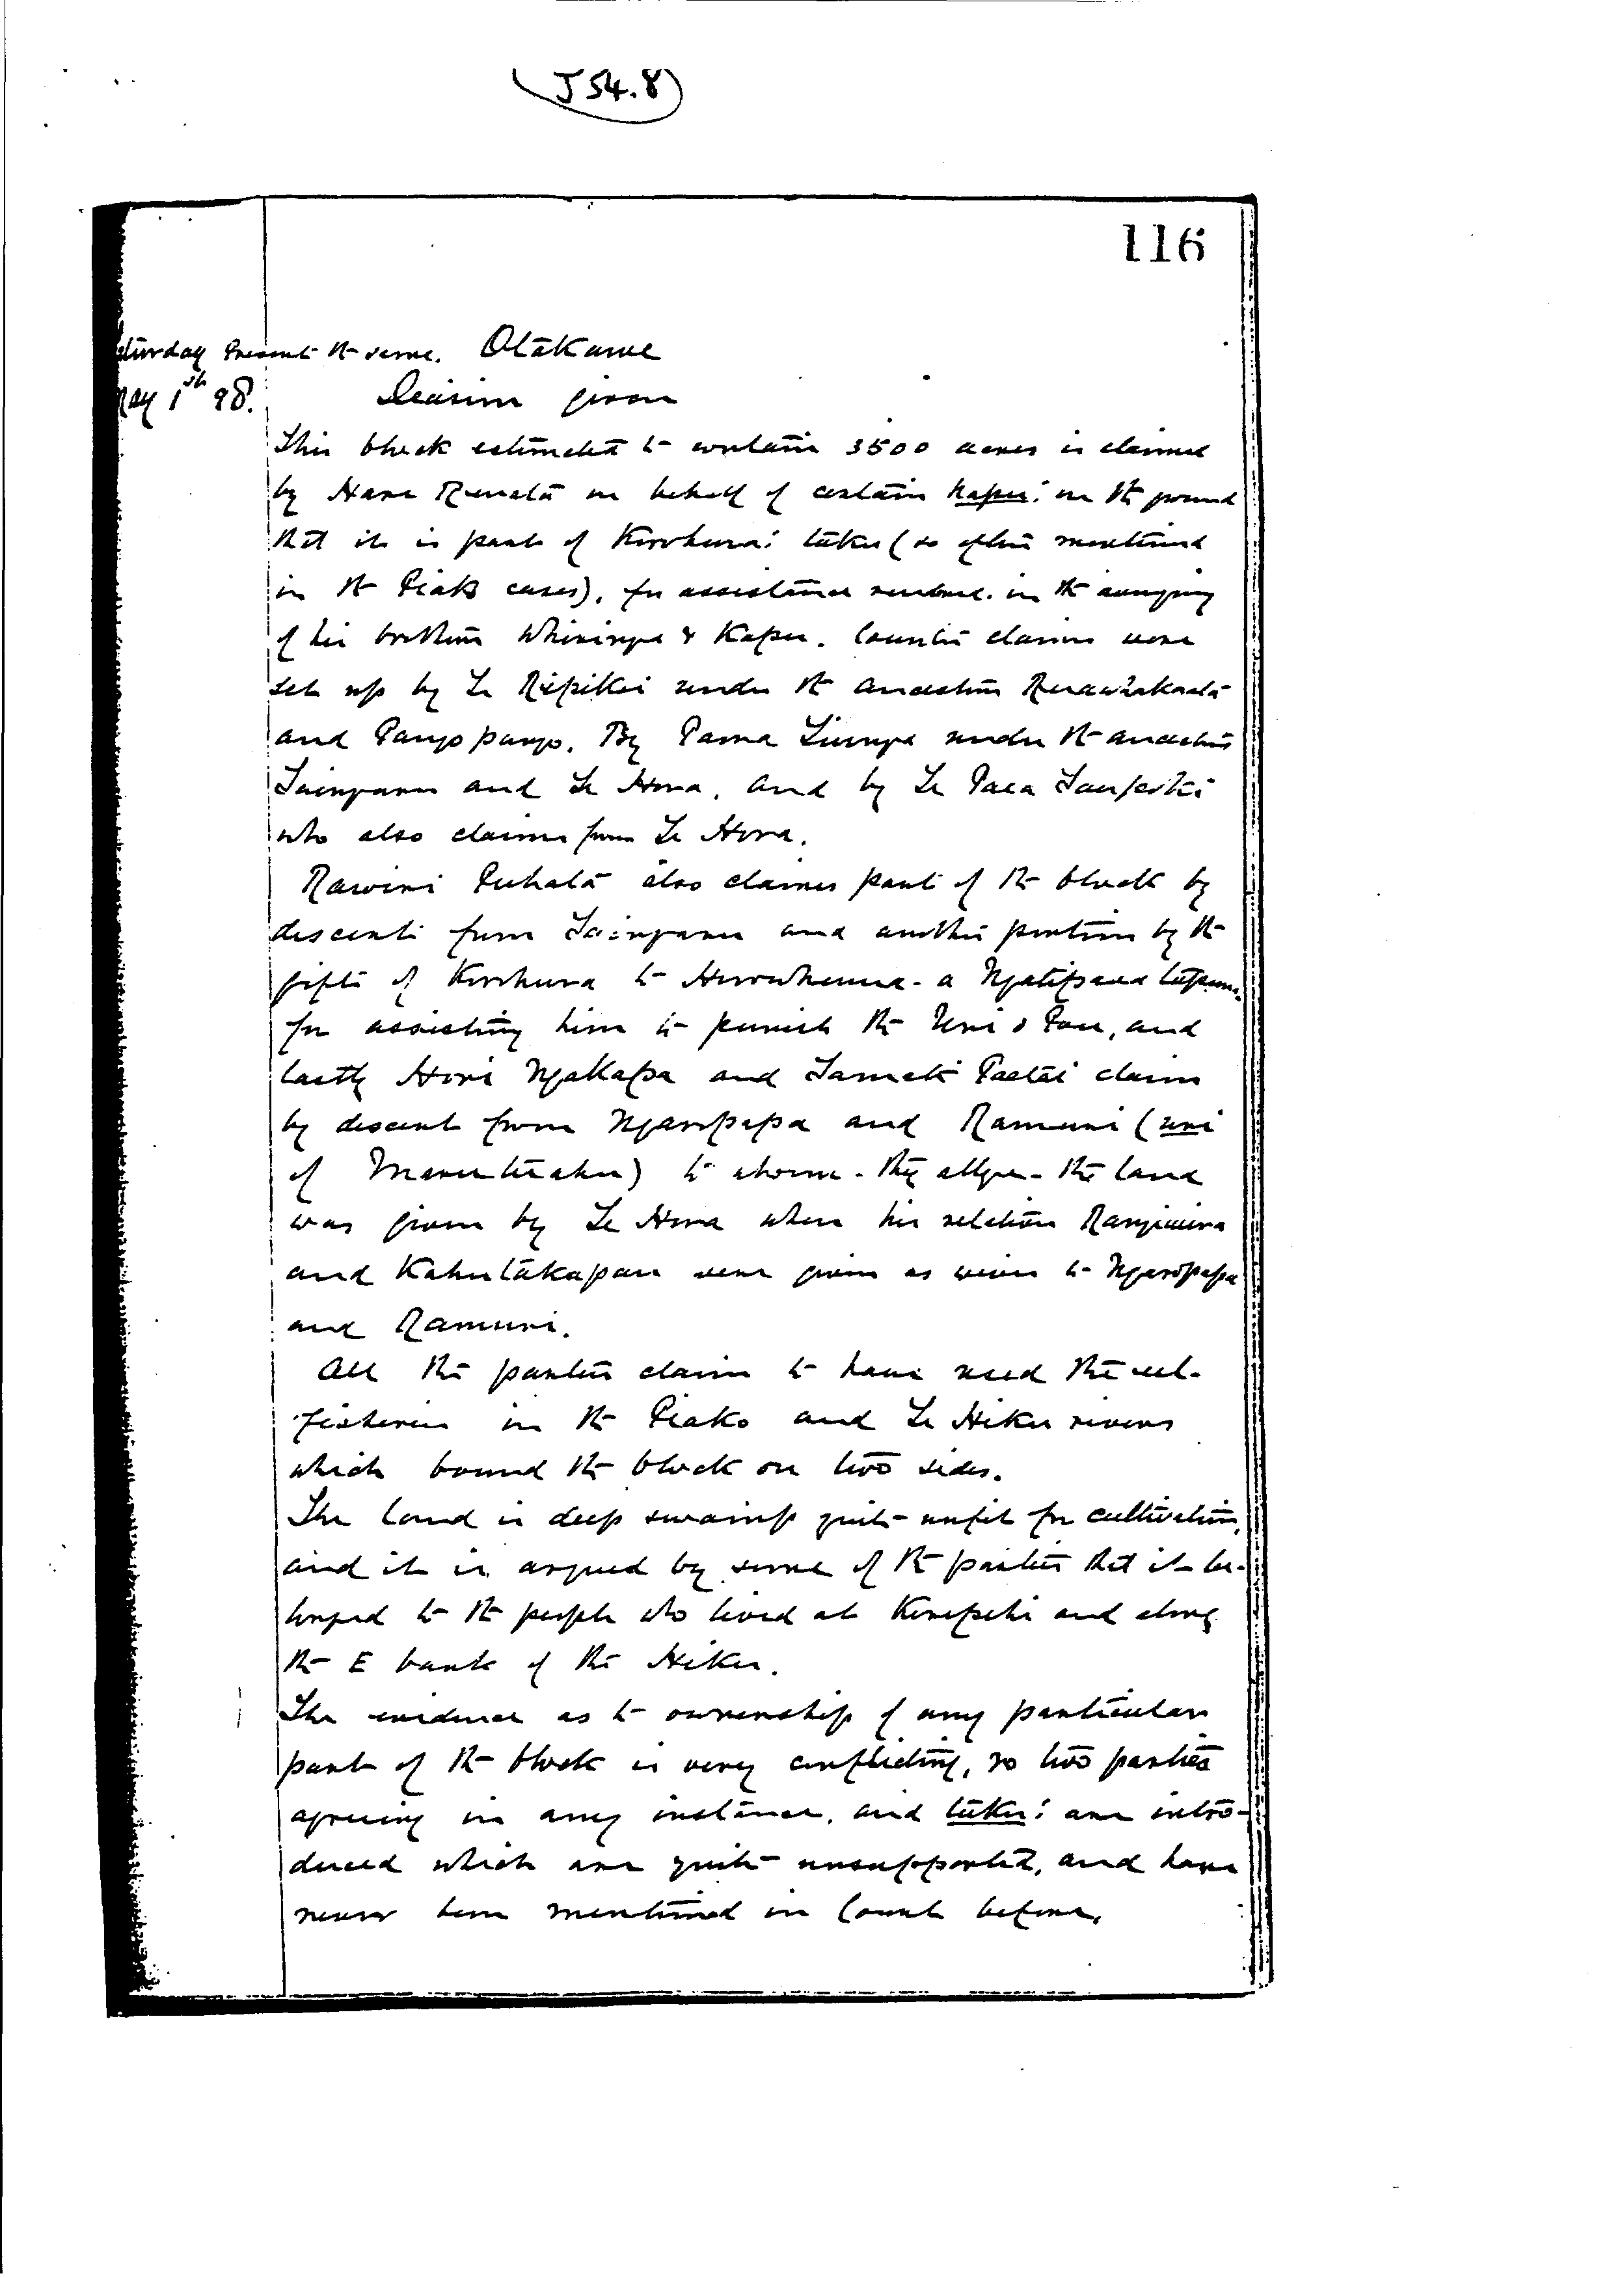 (J 54.8)
116
Saturday Present the same. Otakawe
May 1st 98.
Decision given
This block estimated to contain 3500 acres is claimed
by Hare Renata on behalf of certain hapu: on the ground
that it is part of Korohura: take (so often mentioned
in the Piako cases), for assistance rendered in the avenging
of his brothers Whiringa & Kapu. Counter claims were
set up by Te Ripikoi under the ancestors
and Pangopango. By Parna under the ancestors
Taingarau and Te Hora, and by Te Paea Taupoki
who also claims from Te Hora.
Rawiri Puhata also claims part of the block by
descent from Taingarau and another portion by the
gift of Korohura to a Ngatipaoa tupuna
for assisting him to punish the Uri o Pou, and
lastly Hori Ngakapa and Tameti Paetai claim
by descent from Ngaropapa and Ramuri (uri
of Marutuahu) to whom - they allege - the land
was given by Te Hora when his relations
and Kahutakapau were given as wives to Ngaropapa
and Ramuri.
All the parties claim to have used the eel-
fisheries in the Piako and Te Hiku rivers
which bound the block on two sides.
The land is deep swamp quite unfit for cultivation,
and it is argued by some of the parties that it be-
longed to the people who lived at Kerepehi and along
the E bank of the Hiku.
The evidence as to ownership of any particular
part of the block is very conflicting, no two parties
agreeing in any instance, and take: are intro-
duced which are quite unsupported, and have
never been mentioned in Court before.